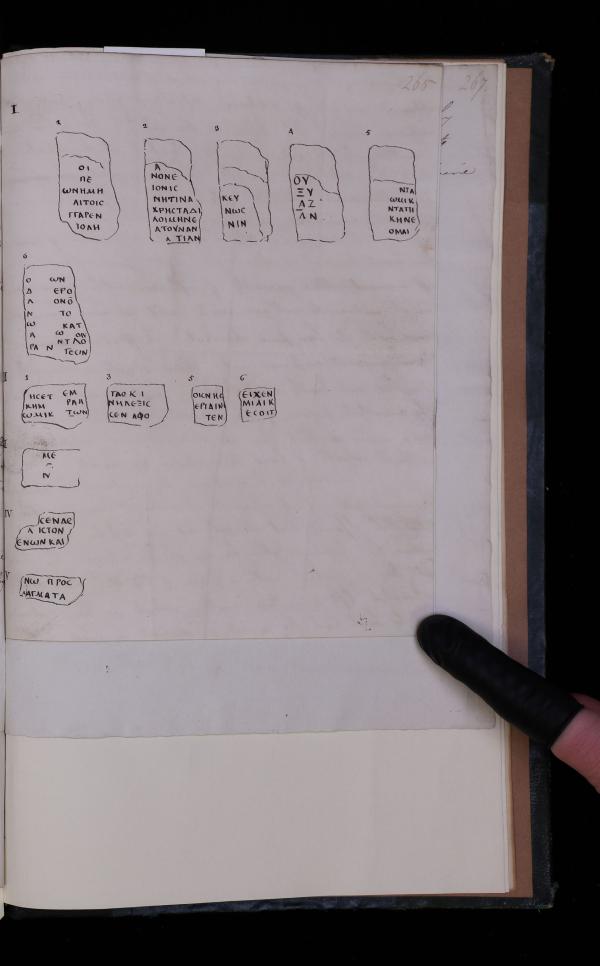 265
267
I
1
2
3
4
5
ΟΙ
ΠΕ
ΩΝΗΜΗ
ΛΙΤΟΙϹ
ΓΓΑΡΕΝ
ΙΟΛΗ
Α
ΝΟΝΕ
ΙΟΝΙϹ
ΝΗΤΙΝΑ
ΧΡΗϹΤΑΔΙ
ΛΟΙΩΗΝΕ
ΑΤΟΥΝΑΝ
ΛΤΙΑΝ
ΚΕΥ
ΝΩϹ
ΝΙΝ
ΟΥ
ΞΥ
ΛΖ
ΛΝ
ΝΤΑ
ΩΜΙΚ
ΝΤΑΤΗ
ΚΗΝΕ
ΟΜΑΙ
6
Ο ΩΝ
Δ ΕΡΟ
Λ ΟΝΟ
Ν ΤΟ
Ω ΚΑΤ
ΡΑ Ν ΓΕϹΙΝ
1
3
5
6
ΗϹΕΤ ΕΜ
ΚΗΜ ΡΑΗ
ϹΩΜΙΚ ΤΩΝ
ΤΑΟΚΙ
ΝΗΛΕΞΙϹ
ϹΕΝ ΑΦΟ
ΟΙΚΝΗϹ
ΕΡΓΑΙΝ
ΤΕΝ
ΕΙΧΕΝ
ΜΙΔΙΚ
ΕϹΟΙΤ
ΜΕ
Ν
IV
ϹΕΝΔΕ
Λ ΙϹΤΟΝ
ΕΝΩΝΚΑΙ
V
ΝΩ ΠΡΟϹ
ΑΓΜΑΤΑ